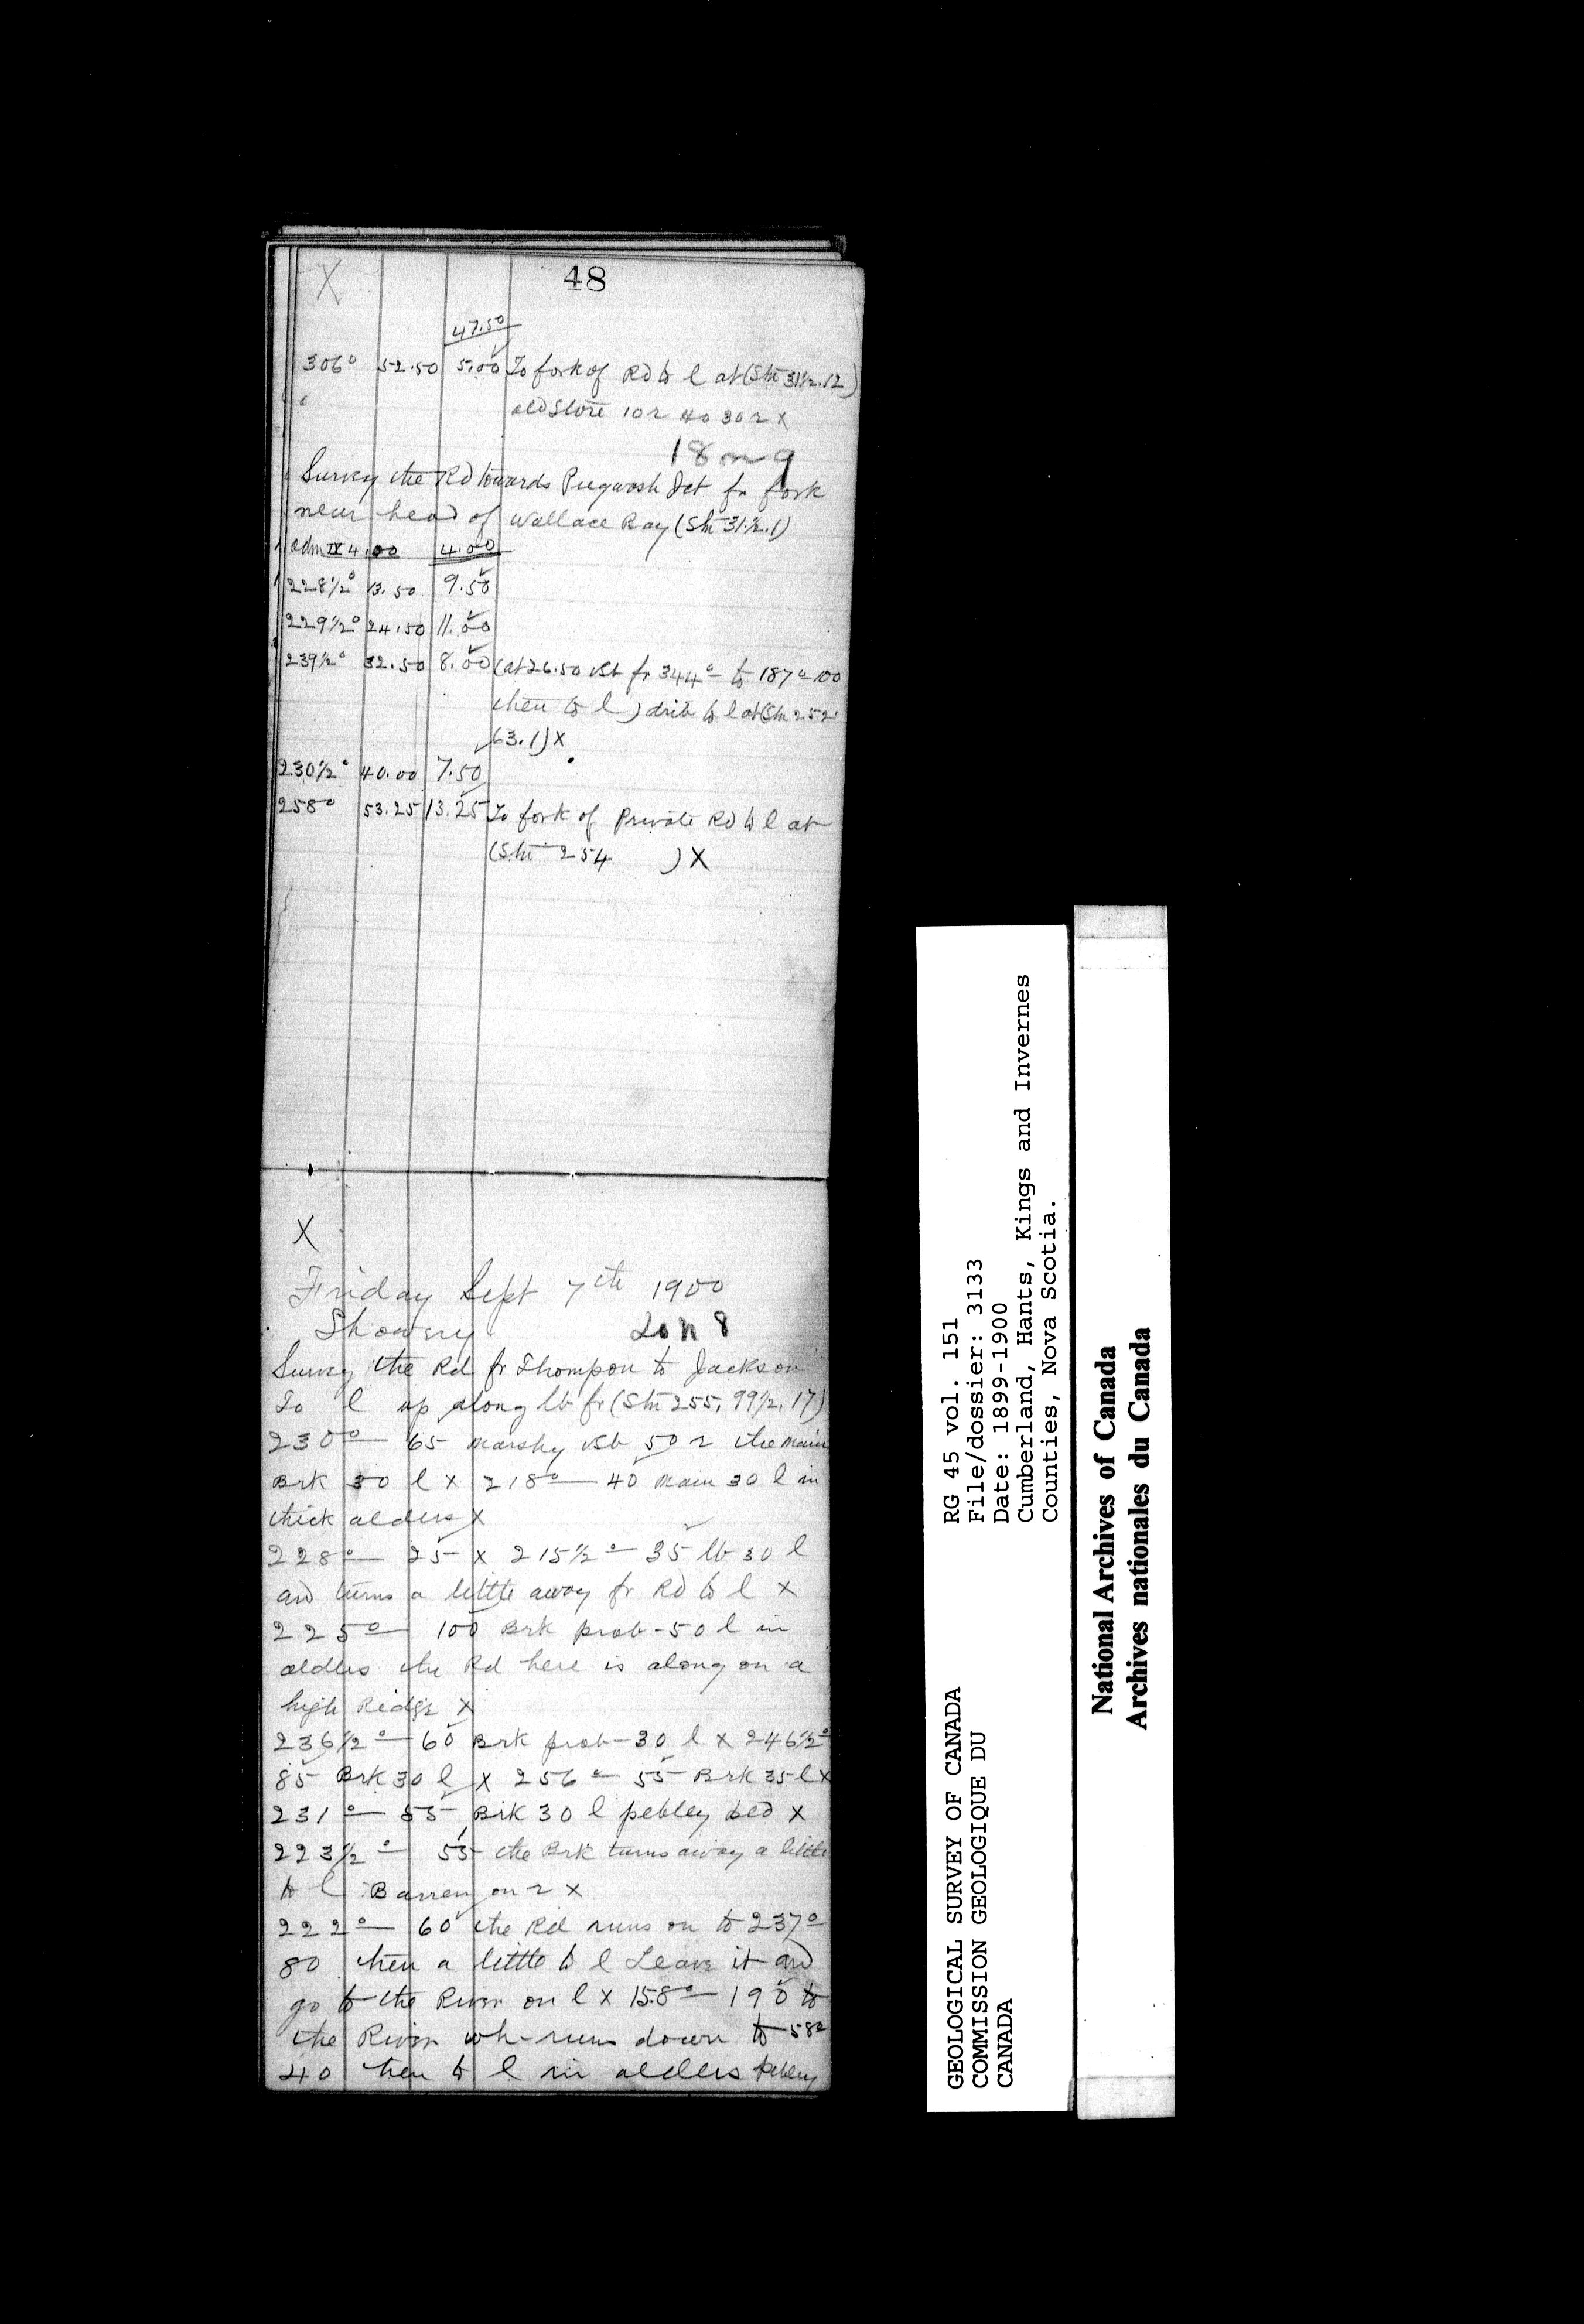 X
48
47.50
306° 52.50 5.00 To fork of Rd to l at (Stn 31½.12)
old Store 10 r 40 30 r X
18 m 9
Survey the Rd towards Pugwash Jct fr fork
near head of Wallace Bay (Stn 31½.1)
odm IV 4.00 4.00
228½° 13.50 9.50
229½° 24.50 11.00
239½° 32.50 8.00 (at 26.50 vSt fr 344° to 187° 100
then to l) drib to l at (Stn 252
63.1) X
230½° 40.00 7.50
258° 53.25 13.25 To fork of Private Rd to l at
(Stn 254 ) X
X
Friday Sept 7th 1900
Showery 20 n 8
Survey the Rd fr Thompson to Jackson
To l up along lb fr (Stn 255, 99½, 17)
230° — 65 marshy vSt 50 r the main
Brk 30 l X 218° — 40 main 30 l in
thick alders X
228° — 25 X 215½° — 35 lb 30 l
and turns a little away fr Rd to l X
225° — 100 Brk prob - 50 l in
alders the Rd here is along on a
high Ridge X
236½° — 60 Brk prob - 30 l X 246½°
85 Brk 30 l X 256° — 55 Brk 35 l X
231° — 55 Brk 30 l pebley bed X
223½° — 55 the Brk turns away a little
to l Barren on r X
222° — 60 the Rd runs on to 237°
80 then a little to l Leave it and
go to the River on l X 158° — 190 to
the River wh - runs down to 58°
40 then to l in alders pebley
GEOLOGICAL SURVEY OF CANADA
COMMISSION GEOLOGIQUE DU
CANADA
RG 45 vol. 151
File/dossier: 3133
Date: 1899-1900
Cumberland, Hants, Kings and Invernes
Counties, Nova Scotia.
National Archives of Canada
Archives nationales du Canada